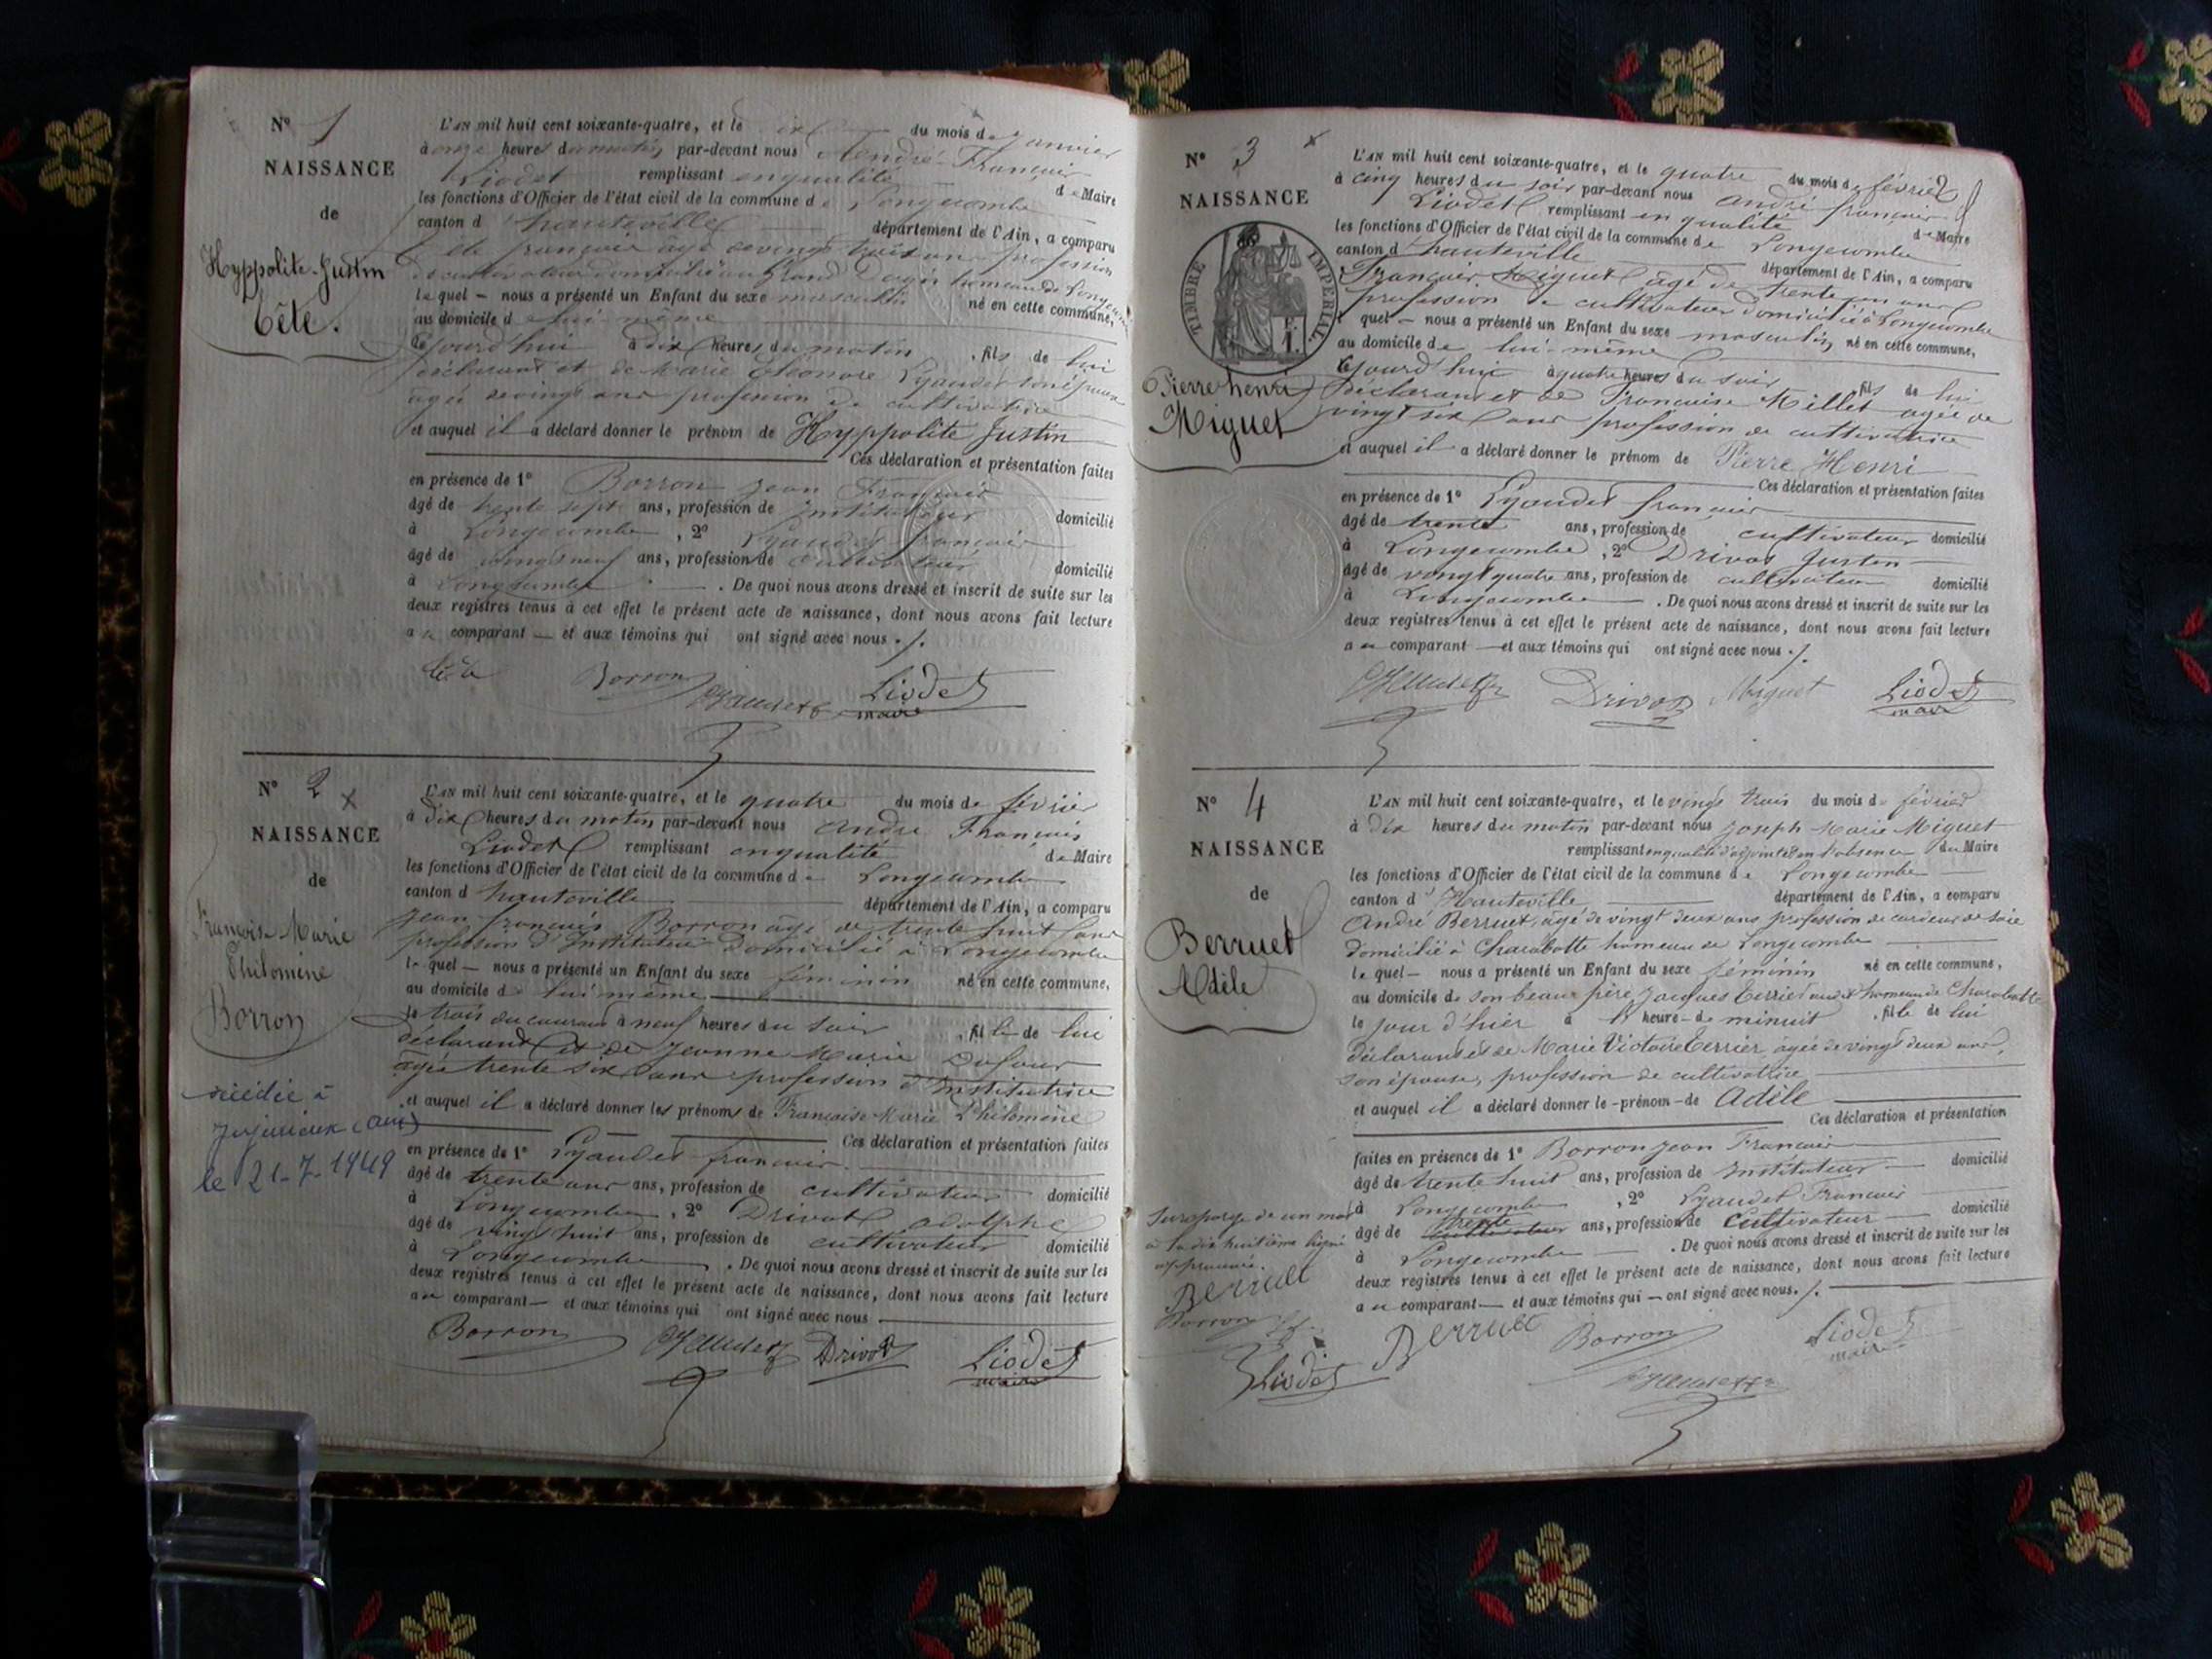 N° 1
NAISSANCE
de
Hyppolite-Justin
Tête.
L'AN mil huit cent soixante-quatre, et le dix du mois de janvier
à onze heures du matin, par-devant nous André François
Liodet remplissant en qualité de Maire
les fonctions d'Officier de l'état civil de la commune de Longecombe
canton d'hauteville département de l'Ain, a comparu
Tête françois âgé de vingt trois ans profession
de cultivateur domicilié au Grand Dergis hameau de Longecombe
lequel — nous a présenté un Enfant du sexe masculin né en cette commune,
au domicile de lui-même
cejourd'hui à dix heures du matin, fils de lui
déclarant et de Marie Éléonore Lyaudet son épouse
âgée de vingt ans profession de cultivatrice
et auquel il a déclaré donner le prénom de Hyppolite Justin
Ces déclaration et présentation faites
en présence de 1° Borron jean François
âgé de trente sept ans, profession de Instituteur domicilié
à Longecombe, 2° Lyaudet françois
âgé de vingt neuf ans, profession de cultivateur domicilié
à Longecombe. De quoi nous avons dressé et inscrit de suite sur les
deux registres tenus à cet effet le présent acte de naissance, dont nous avons fait lecture
au comparant — et aux témoins qui ont signé avec nous ./.
tête Borron Lyaudet Liodet
maire
N° 2 x
NAISSANCE
de
Françoise Marie
Philomène
Borron
décédée à
Jujurieux (Ain)
le 21-7-1949
L'AN mil huit cent soixante-quatre, et le quatre du mois de février
à Dix heures du matin par-devant nous André François
Liodet remplissant en qualité de Maire
les fonctions d'Officier de l'état civil de la commune de Longecombe
canton d'hauteville département de l'Ain, a comparu
jean françois Borron âgé de trente huit ans
profession d'Instituteur Domicilié à Longecombe
lequel — nous a présenté un Enfant du sexe féminin né en cette commune,
au domicile de lui même
le trois du courant à neuf heures du soir, fille de lui
déclarant et de Jeanne Marie Dufour
âgée trente six ans profession d'Institutrice
et auquel il a déclaré donner les prénoms de Françoise Marie Philomène
Ces déclaration et présentation faites
en présence de 1° Lyaudet françois
âgé de trente ans ans, profession de cultivateur domicilié
à Longecombe, 2° Drivot adolphe
âgé de vingt huit ans, profession de cultivateur domicilié
à Longecombe. De quoi nous avons dressé et inscrit de suite sur les
deux registres tenus à cet effet le présent acte de naissance, dont nous avons fait lecture
au comparant — et aux témoins qui ont signé avec nous
Borron Lyaudet Drivot Liodet
maire
N° 3 x
NAISSANCE
TIMBRE IMPÉRIAL
F.
1.
Pierre henri
Miguet
L'AN mil huit cent soixante-quatre, et le quatre du mois de février
à cinq heures du soir par-devant nous André françois
Liodet remplissant en qualité de Maire
les fonctions d'Officier de l'état civil de la commune de Longecombe
canton d'hauteville département de l'Ain, a comparu
François Miguet âgé de trente un ans
profession de cultivateur domicilié à Longecombe
quel — nous a présenté un Enfant du sexe masculin, né en cette commune,
au domicile de lui-même
Cejourd'hui à quatre heures du soir fils de lui
déclarant et de Françoise Millet âgée de
vingt six ans profession de cultivatrice
et auquel il a déclaré donner le prénom de Pierre Henri
Ces déclaration et présentation faites
en présence de 1° Lyaudet françois
âgé de trente ans, profession de cultivateur domicilié
à Longecombe, 2° Drivot Justin
âgé de vingt quatre ans, profession de cultivateur domicilié
à Longecombe. De quoi nous avons dressé et inscrit de suite sur les
deux registres tenus à cet effet le présent acte de naissance, dont nous avons fait lecture
au comparant — et aux témoins qui ont signé avec nous ./.
Lyaudet Drivot Miguet Liodet
maire
N° 4
NAISSANCE
de
Berruet
Adèle
L'AN mil huit cent soixante-quatre, et le vingt trois du mois de février
à Dix heures du matin par-devant nous Joseph Marie Miguet
remplissant en qualité d'adjoint et en l'absence du Maire
les fonctions d'Officier de l'état civil de la commune de Longecombe
canton d'Hauteville département de l'Ain, a comparu
André Berruet, âgé de vingt deux ans profession de cardeur de soie
domicilié à Charabotte hameau de Longecombe
lequel — nous a présenté un Enfant du sexe féminin né en cette commune,
au domicile de son beau père Jacques Terrier audit hameau de Charabotte
le jour d'hier à l'heure de minuit, fille de lui
déclarant et de Marie Victoire Terrier, âgée de vingt deux ans,
son épouse, profession de cultivatrice
et auquel il a déclaré donner le prénom de Adèle
Ces déclaration et présentation
faites en présence de 1° Borron jean François
âgé de trente huit ans, profession de Instituteur domicilié
à Longecombe, 2° Lyaudet François
âgé de trente ans, profession de Cultivateur domicilié
à Longecombe. De quoi nous avons dressé et inscrit de suite sur les
deux registres tenus à cet effet le présent acte de naissance, dont nous avons fait lecture
au comparant — et aux témoins qui — ont signé avec nous. /.
Surcharge de un mot
à la dix huitième ligne
approuvée.
Berruet
Borron
Liodet
Berruet Borron Liodet
maire
Lyaudet